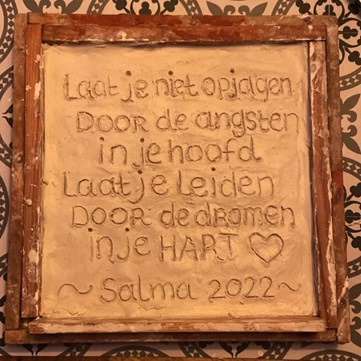 Laat je niet opjagen
DOOR de angsten
in je hoofd
Laat je leiden
DOOR de dromen
in je HART ♡
~ Salma 2022 ~